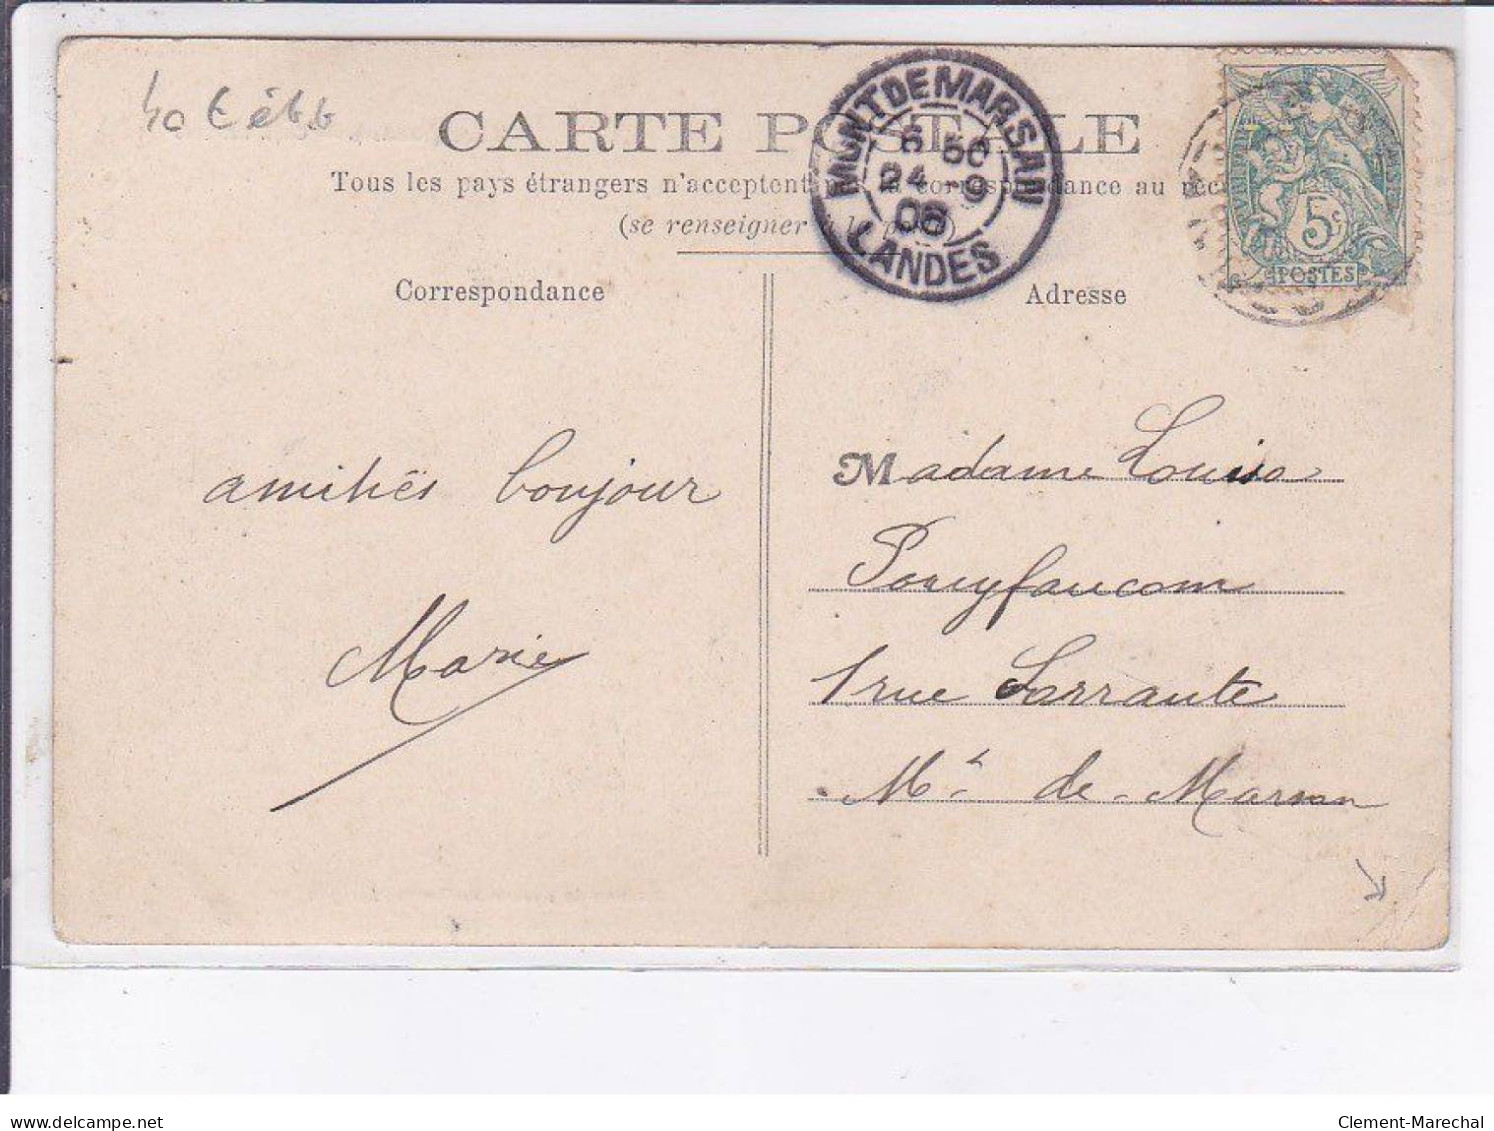 CARTE POSTALE
Tous les pays étrangers n'acceptent la correspondance au
(se renseigner à la poste)
MONT DE MARSAN
6 50
24 -9
08
LANDES
5c
POSTES
Correspondance
Adresse
amitiés bonjour
Marie
Madame Louisa
Poueyfaucom
1 rue Larrante
Mt de Marsan
delcampe.net
Clement-Marechal